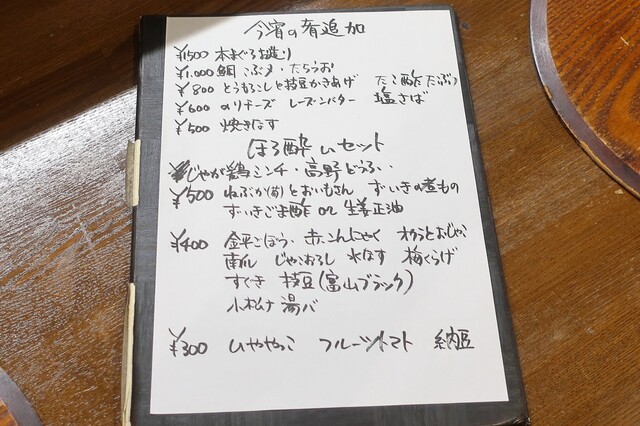 今宵の肴追加
¥1500 本まぐろお造り
¥1.000 鯛 こぶ〆・たちうお
¥800 とうもろこしと枝豆かきあげ たこ酢たぶり
¥600 のりチーズ レーズンバター 塩さば
¥500 焼きなす
ほろ酔いセット
じゃが鶏ミンチ・高野どうふ・
¥500 ねぶか(前)とおいもさん ずいきの煮もの
ずいきごま酢 or 生姜正油
¥400 金平ごぼう、赤こんにゃく オカラとおじゃこ
南瓜 じゃこおろし 水なす 梅くらげ
すぐき 枝豆(富山ブラック)
小松な 湯バ
¥300 ひややっこ フルーツトマト 納豆